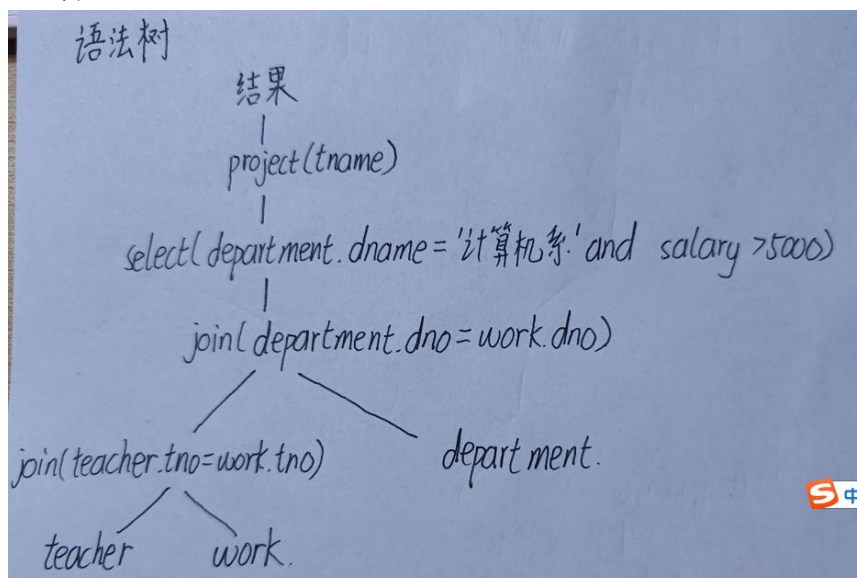 语法树
结果
project(tname)
select(department.dname='计算机系'and salary>5000)
join(department.dno=work.dno)
join(teacher.tno=work.tno)
department.
teacher
work.
S 中